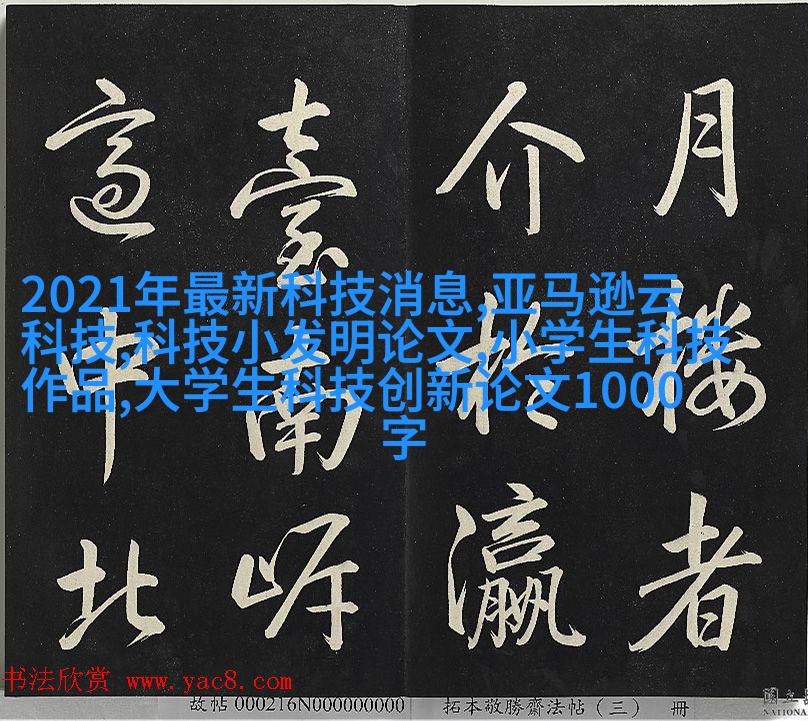 月樓者
介於瀛
臺南岸
適中北
2021年最新科技消息,亚马逊云
科技,科技小发明论文,小学生科技
作品,大学生科技创新论文1000
字
书法欣赏 www.yac8.com
故帖 000216N000000000 拓本敬勝齋法帖（三） 冊
國立
NATIONA